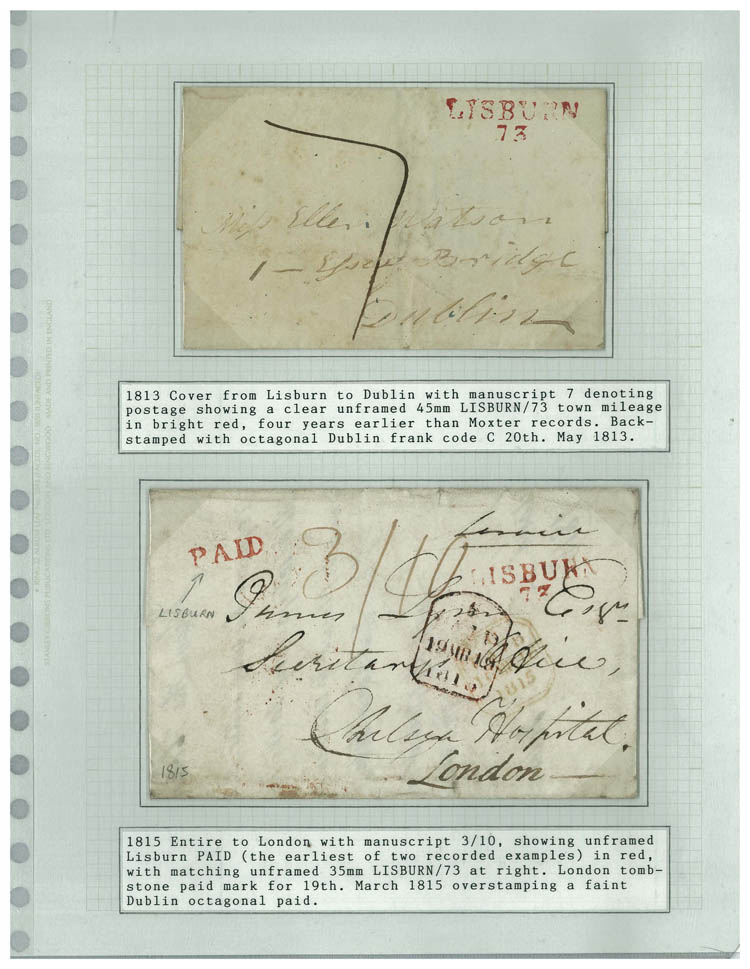 LISBURN
73
7
Miss Ellen Watson
1 - Essex Bridge
Dublin
1813 Cover from Lisburn to Dublin with manuscript 7 denoting
postage showing a clear unframed 45mm LISBURN/73 town mileage
in bright red, four years earlier than Moxter records. Back-
stamped with octagonal Dublin frank code C 20th. May 1813.
PAID
3/10
LISBURN
73
LISBURN
James Esqr
Secretary's Office,
PAID
19 MR 19
1815
1815
Chelsea Hospital.
London
1815
1815 Entire to London with manuscript 3/10, showing unframed
Lisburn PAID (the earliest of two recorded examples) in red,
with matching unframed 35mm LISBURN/73 at right. London tomb-
stone paid mark for 19th. March 1815 overstamping a faint
Dublin octagonal paid.